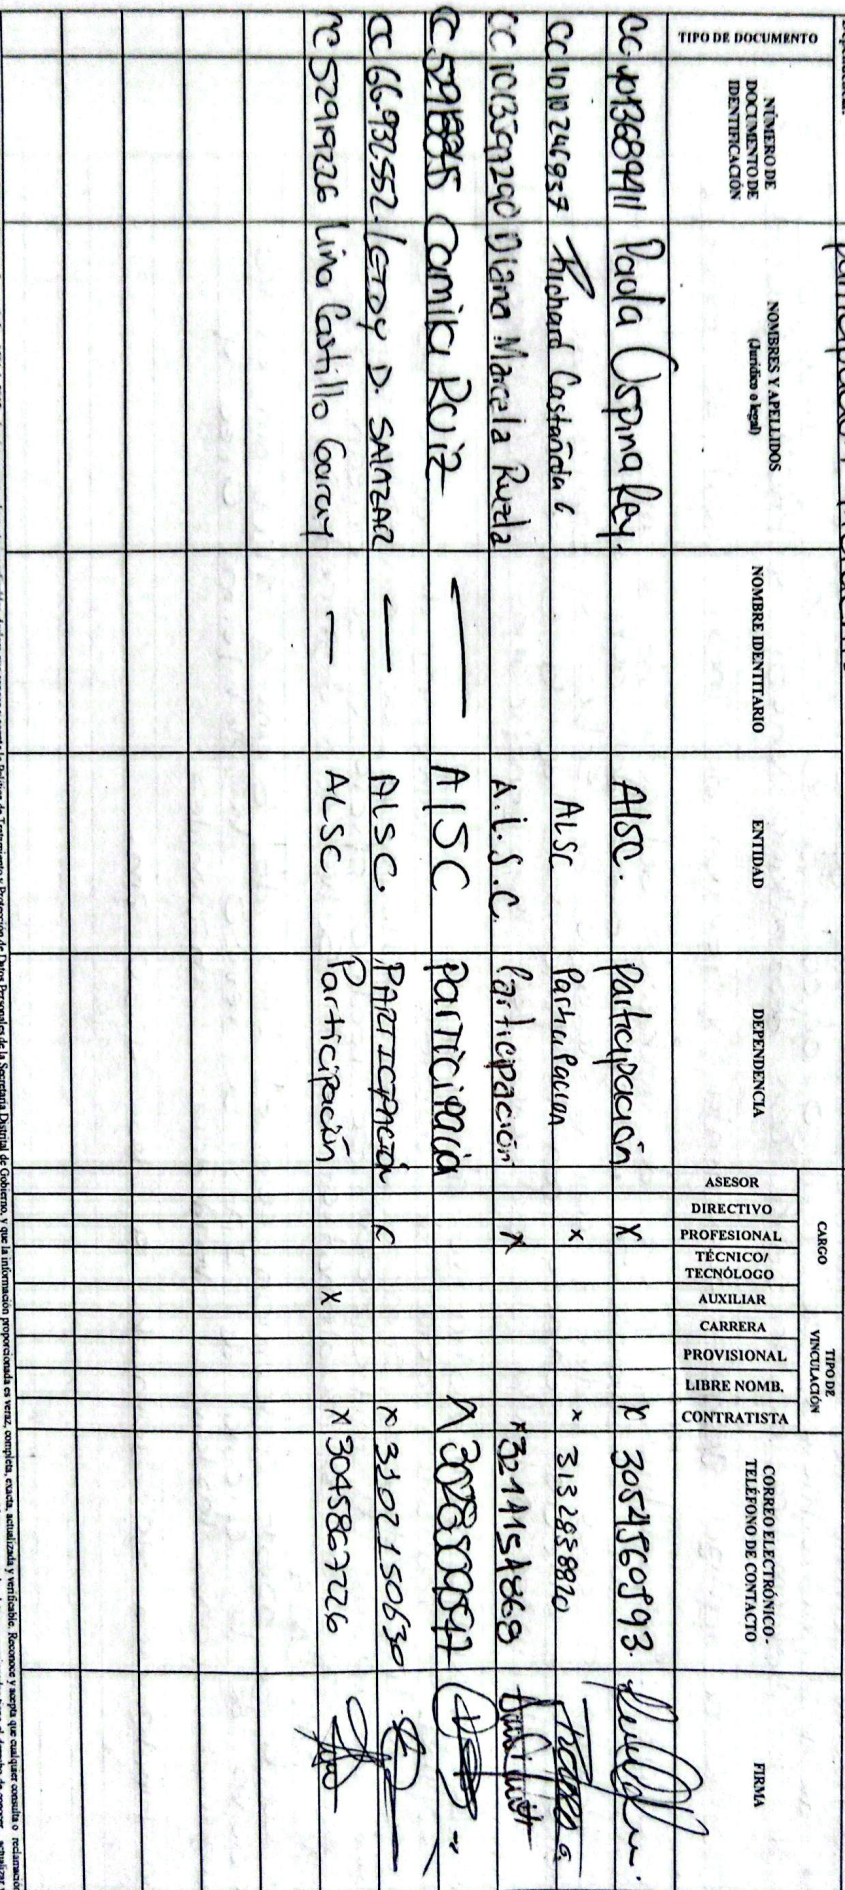 TIPO DE DOCUMENTO
NÚMERO DE DOCUMENTO DE IDENTIFICACIÓN
NOMBRES Y APELLIDOS
(Jurídico o legal)
NOMBRE IDENTITARIO
ENTIDAD
DEPENDENCIA
CARGO
ASESOR
DIRECTIVO
PROFESIONAL
TÉCNICO/ TECNÓLOGO
AUXILIAR
TIPO DE VINCULACIÓN
CARRERA
PROVISIONAL
LIBRE NOMB.
CONTRATISTA
CORREO ELECTRÓNICO- TELÉFONO DE CONTACTO
FIRMA
CC 1013689411 Paula Ospina Rey. AlSC. Participación X X 3054560993.
CC 1010246937 Richard Castañeda G ALSC Participacion x x 3132858820
CC 1013591290 Diana Marcela A.L.S.C. Participación X x 3214154868
CC Camila Ruiz — AlSC Participación X
CC 66.932.552. LEIDY D. SALAZAR — ALSC. PARTICIPACIÓN x x 3102150630
CC 52919226 Lina Castillo Garay — ALSC Participación X X 3045867226
Política de Tratamiento y Protección de Datos Personales de la Secretaría Distrital de Gobierno, y que la información proporcionada es veraz, completa, exacta, actualizada y verificable. Reconoce y acepta que cualquier consulta o reclamación